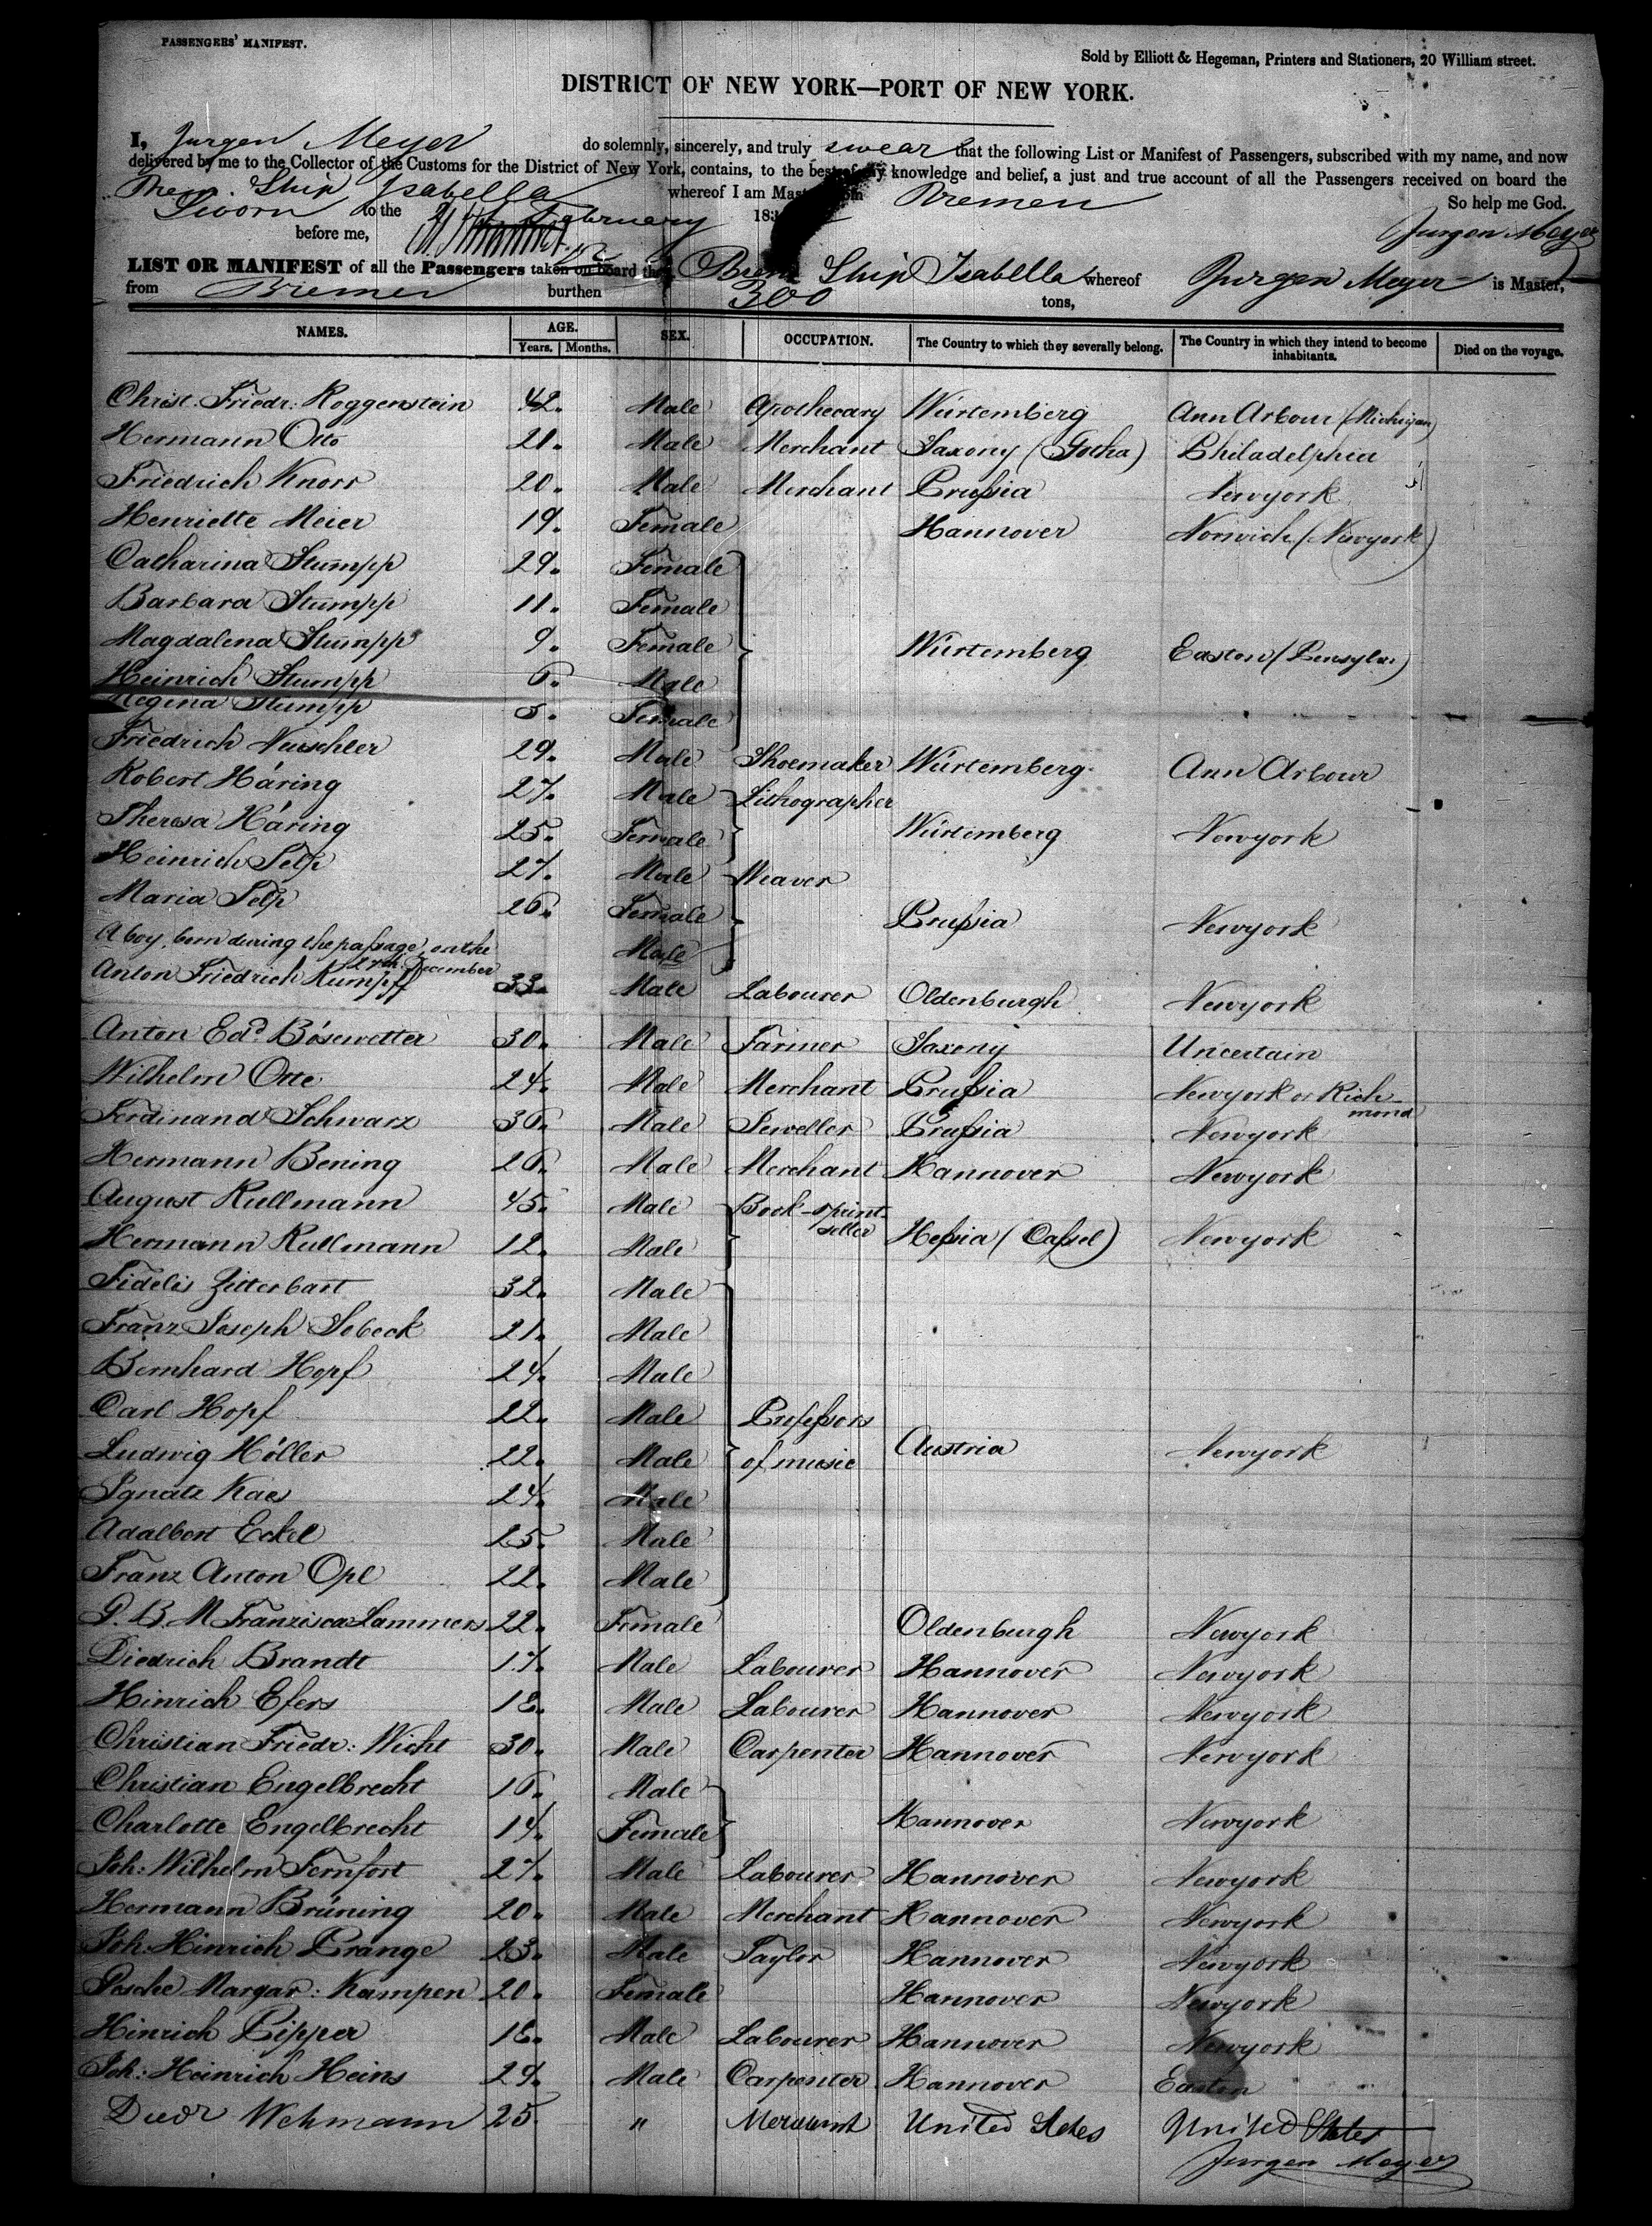 PASSENGERS' MANIFEST.
Sold by Elliott & Hegeman, Printers and Stationers, 20 William street.
DISTRICT OF NEW YORK—PORT OF NEW YORK.
I, Jurgen Meyer do solemnly, sincerely, and truly swear that the following List or Manifest of Passengers, subscribed with my name, and now
delivered by me to the Collector of the Customs for the District of New York, contains, to the best of my knowledge and belief, a just and true account of all the Passengers received on board the
Brem. Ship Isabella whereof I am Master from Bremen
Sworn to the February 183 So help me God.
before me, Jurgen Meyer
LIST OR MANIFEST of all the Passengers taken on board the Brem Ship Isabella whereof Jurgen Meyer is Master,
from Bremen burthen 300 tons,
NAMES. AGE. SEX. OCCUPATION. The Country to which they severally belong. The Country in which they intend to become inhabitants. Died on the voyage.
Years. Months.
Christ. Friedr: Roggenstein 42. Male Apothecary Würtemberg Ann Arbour (Michigan)
Hermann Otto 21. Male Merchant Saxony (Gotha) Philadelphia
Friedrich Knorr 20. Male Merchant Prussia Newyork
Henriette Meier 19. Female Hannover Norwich (Newyork)
Catharina Stumpp 29. Female
Barbara Stumpp 11. Female
Magdalena Stumpp 9. Female Würtemberg Easton (Pensylv.)
Heinrich Stumpp 6. Male
Regina Stumpp 5. Female
Friedrich Nuschler 29. Male Shoemaker Würtemberg Ann Arbour
Robert Häring 27. Male Lithographer
Theresa Häring 25. Female Würtemberg Newyork
Heinrich Selp 27. Male Weaver
Maria Selp 26. Female Prussia Newyork
A boy, born during the passage, on the Male
27th December
Anton Friedrich Kumpff 33. Male Labourer Oldenburgh Newyork
Anton Edd. Bösewetter 30. Male Farmer Saxony Uncertain
Wilhelm Otte 24. Male Merchant Prussia Newyork or Rich-
mond
Ferdinand Schwarz 36. Male Jeweller Prussia Newyork
Hermann Bening 26. Male Merchant Hannover Newyork
August Kullmann 45. Male Book- & print-
seller
Hermann Kullmann 12. Male Hessia (Cassel) Newyork
Fidelis Zitterbart 32. Male
Franz Joseph Sobeck 21. Male
Bernhard Hopf 24. Male
Carl Hopf 22. Male Professors
Ludwig Höller 22. Male of music Austria Newyork
Ignatz Kaes 24. Male
Adalbert Eckel 25. Male
Franz Anton Opl 22. Male
P. B. M Franzisca Lammers 22. Female Oldenburgh Newyork
Diedrich Brandt 17. Male Labourer Hannover Newyork
Hinrich Efers 18. Male Labourer Hannover Newyork
Christian Friedr: Wicht 30. Male Carpenter Hannover Newyork
Christian Engelbrecht 16. Male
Charlotte Engelbrecht 14. Female Hannover Newyork
Joh: Wilhelm Fernfort 27. Male Labourer Hannover Newyork
Hermann Brüning 20. Male Merchant Hannover Newyork
Joh: Hinrich Prange 23. Male Taylor Hannover Newyork
Pesche Margar: Kampen 20. Female Hannover Newyork
Hinrich Pipper 18. Male Labourer Hannover Newyork
Joh: Heinrich Heins 29. Male Carpenter Hannover Easton
Diedr Wehmann 25. " Merchant United States United States
Jurgen Meyer